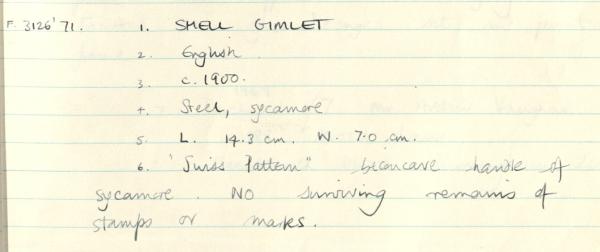 F. 3126'71. 1. SHELL GIMLET
2. English
3. c. 1900.
4. Steel, sycamore
5. L. 14.3 cm. W. 7.0 cm.
6. 'Swiss Pattern" biconcave handle of
sycamore. NO surviving remains of
stamps or marks.